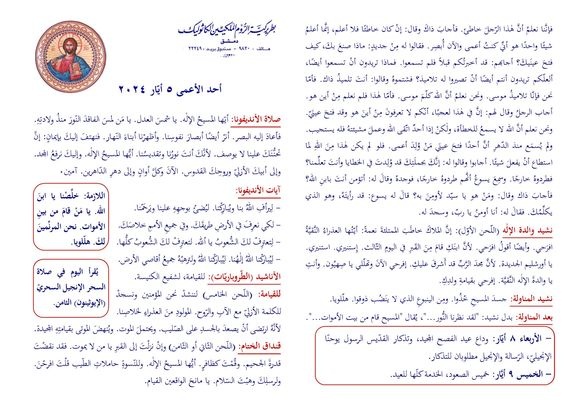 بطريركيّة الرّوم الملكيّين الكاثوليك
دمشق
أحد الأعمى ٥ أيّار ٢٠٢٤
صلاة الأنديفونا: أيّها المسيحُ الإلٰه. يا شمسَ العدل. يا مَن لمسَ الفاقدَ النّورَ منذُ ولادتِه.
فأعادَ إليه البصر. أنِرْ أيضًا أبصارَ نفوسِنا. وأظهِرْنا أبناءَ النّهار. فنهتِفَ إليكَ بإيمان: إنَّ
تحنُّنَكَ علينا لا يوصف. لأنّكَ أنتَ نورُنا وتقديسُنا. أيّها المسيحُ الإلٰه. وإليكَ نرفعُ المجد.
وإلى أبيكَ الأزليّ وروحِكَ القدّوس. الآنَ وكلَّ أوانٍ وإلى دهرِ الدّاهرين. آمين.
آيات الأنديفونا:
- لِيرأَفِ اللهُ بنا ويُبارِكْنا. ليُضِئْ بوجهِهِ علينا ويَرحَمْنا.
- لكي نعرفَ في الأرضِ طريقَكَ. وفي جميعِ الأممِ خلاصَكَ.
- لِتعترِفْ لكَ الشُّعوبُ يا الله. لتعترِفْ لكَ الشُّعوبُ كلُّها.
- لِيُبارِكْنا اللهُ إلٰهُنا. لِيُبارِكْنا اللهُ ولترهَبْهُ جميعُ أقاصي الأرض.
اللازمة: خلِّصْنا يا ابنَ
الله. يا مَنْ قامَ من بينِ
الأموات. نحن المرنِّمينَ
لكَ. هلّلويا.
الأناشيد (الطّروباريّات): للقيامة، لشفيع الكنيسة.
للقيامة: (اللّحن الخامس) لننشدْ نحن المؤمنين ونسجدْ
للكلمة الأزليّ مع الآبِ والرّوح. المولودِ منَ العذراءِ لخلاصِنا.
لأنّه ارتضى أنْ يصعدَ بالجسدِ على الصّليب. ويحتملَ الموت. ويُنهضَ الموتى بقيامتِه المجيدة.
يُقرأ اليوم في صلاة
السحر الإنجيل السحريّ
(الإيوثينون) الثامن.
قنداق الختام: (اللّحن الثاني أو الثامن) وإنْ نزلتَ إلى القبرِ يا من لا يموت. فقد نقضتَ
قدرةَ الجحيم. وقُمتَ كظافر. أيّها المسيحُ الإلٰه. وللنّسوةِ حاملاتِ الطّيبِ قُلتَ افرحْنَ.
ولرسلِكَ وهبتَ السّلام. يا مانحَ الواقعينَ القيام.
فإنّنا نعلمُ أنَّ هذا الرّجلَ خاطئ. فأجابَ ذاكَ وقال: إن كان خاطئًا فلا أعلم، إنّما أعلمُ
شيئًا واحدًا هو أنّي كنتُ أعمى والآنَ أُبصر. فقالوا له من جديد: ماذا صنعَ بكَ، كيف
فتحَ عينَيْك؟ أجابهم: قد أخبرتُكم قبلاً فلم تسمعوا. فماذا تريدون أنْ تسمعوا أيضًا،
ألعلّكم تريدون أنتم أيضًا أنْ تصيروا له تلاميذ؟ فشتموهُ وقالوا: أنتَ تلميذُ ذاك. أمّا
نحن فإنّا تلاميذُ موسى. ونحن نعلمُ أنَّ اللهَ كلّمَ موسى، أمّا هذا فلم نعلمْ من أين هو.
أجابَ الرجلُ وقالَ لهم: إنَّ في هذا لعجبًا، أنّكم لا تعرفونَ من أينَ هو وقد فتحَ عينيّ.
ونحن نعلمُ أنَّ اللهَ لا يسمعُ للخطأة، ولكنْ إذا أحدٌ اتّقى اللهَ وعملَ مشيئتَه فله يستجيب.
ولم يُسمَعْ منذُ الدّهرِ أنَّ أحدًا فتحَ عينَي مَن وُلِدَ أعمى. فلو لم يكنْ هذا منَ اللهِ لما
استطاعَ أنْ يفعلَ شيئًا. أجابوا وقالوا له: إنّكَ بجملتِكَ قد وُلِدتَ في الخطايا وأنتَ تُعلّمُنا؟
فطردوهُ خارجًا. وسمِعَ يسوعُ أنّهم طردوهُ خارجًا. فوجدَهُ وقالَ له: أتؤمنُ أنتَ بابنِ الله؟
فأجابَ ذاكَ وقال: ومَن هو يا سيّدُ لأومنَ به؟ قالَ له يسوع: قد رأيتَهُ، وهو الذي
يكلّمُك. فقالَ له: أنا أومنُ يا ربّ، وسجدَ له.
نشيد والدة الإلٰه: (اللّحن الأوّل): إنَّ الملاكَ خاطبَ الممتلئةَ نعمة: أيّتها العذراءُ النّقيّةُ
افرحي. وأيضًا أقولُ افرحي. لأنَّ ابنَكِ قامَ منَ القبرِ في اليومِ الثالث. إستنيري. استنيري.
يا أورشليمُ الجديدة. لأنَّ مجدَ الرّبِّ قد أشرقَ عليكِ. إفرحي الآنَ وتهلّلي يا صِهيون. وأنتِ
يا والدةَ الإلٰهِ النّقيّة. إفرحي بقيامةِ ولدِكِ.
نشيد المناولة: جسدَ المسيحِ خُذوا. ومِنَ الينبوعِ الذي لا ينضَبُ ذوقوا. هلّلويا.
بعد المناولة: بدل نشيد: "لقد نظرنا النُّور..."، يُقال "المسيح قام من بيت الأموات...".
- الأربعاء ٨ أيّار: وداع عيد الفصح المجيد، وتذكار القدّيس الرسول يوحنّا
الإنجيليّ، الرسالة والإنجيل مطلوبان للتذكار.
- الخميس ٩ أيّار: خميس الصعود، الخدمة كلّها للعيد.